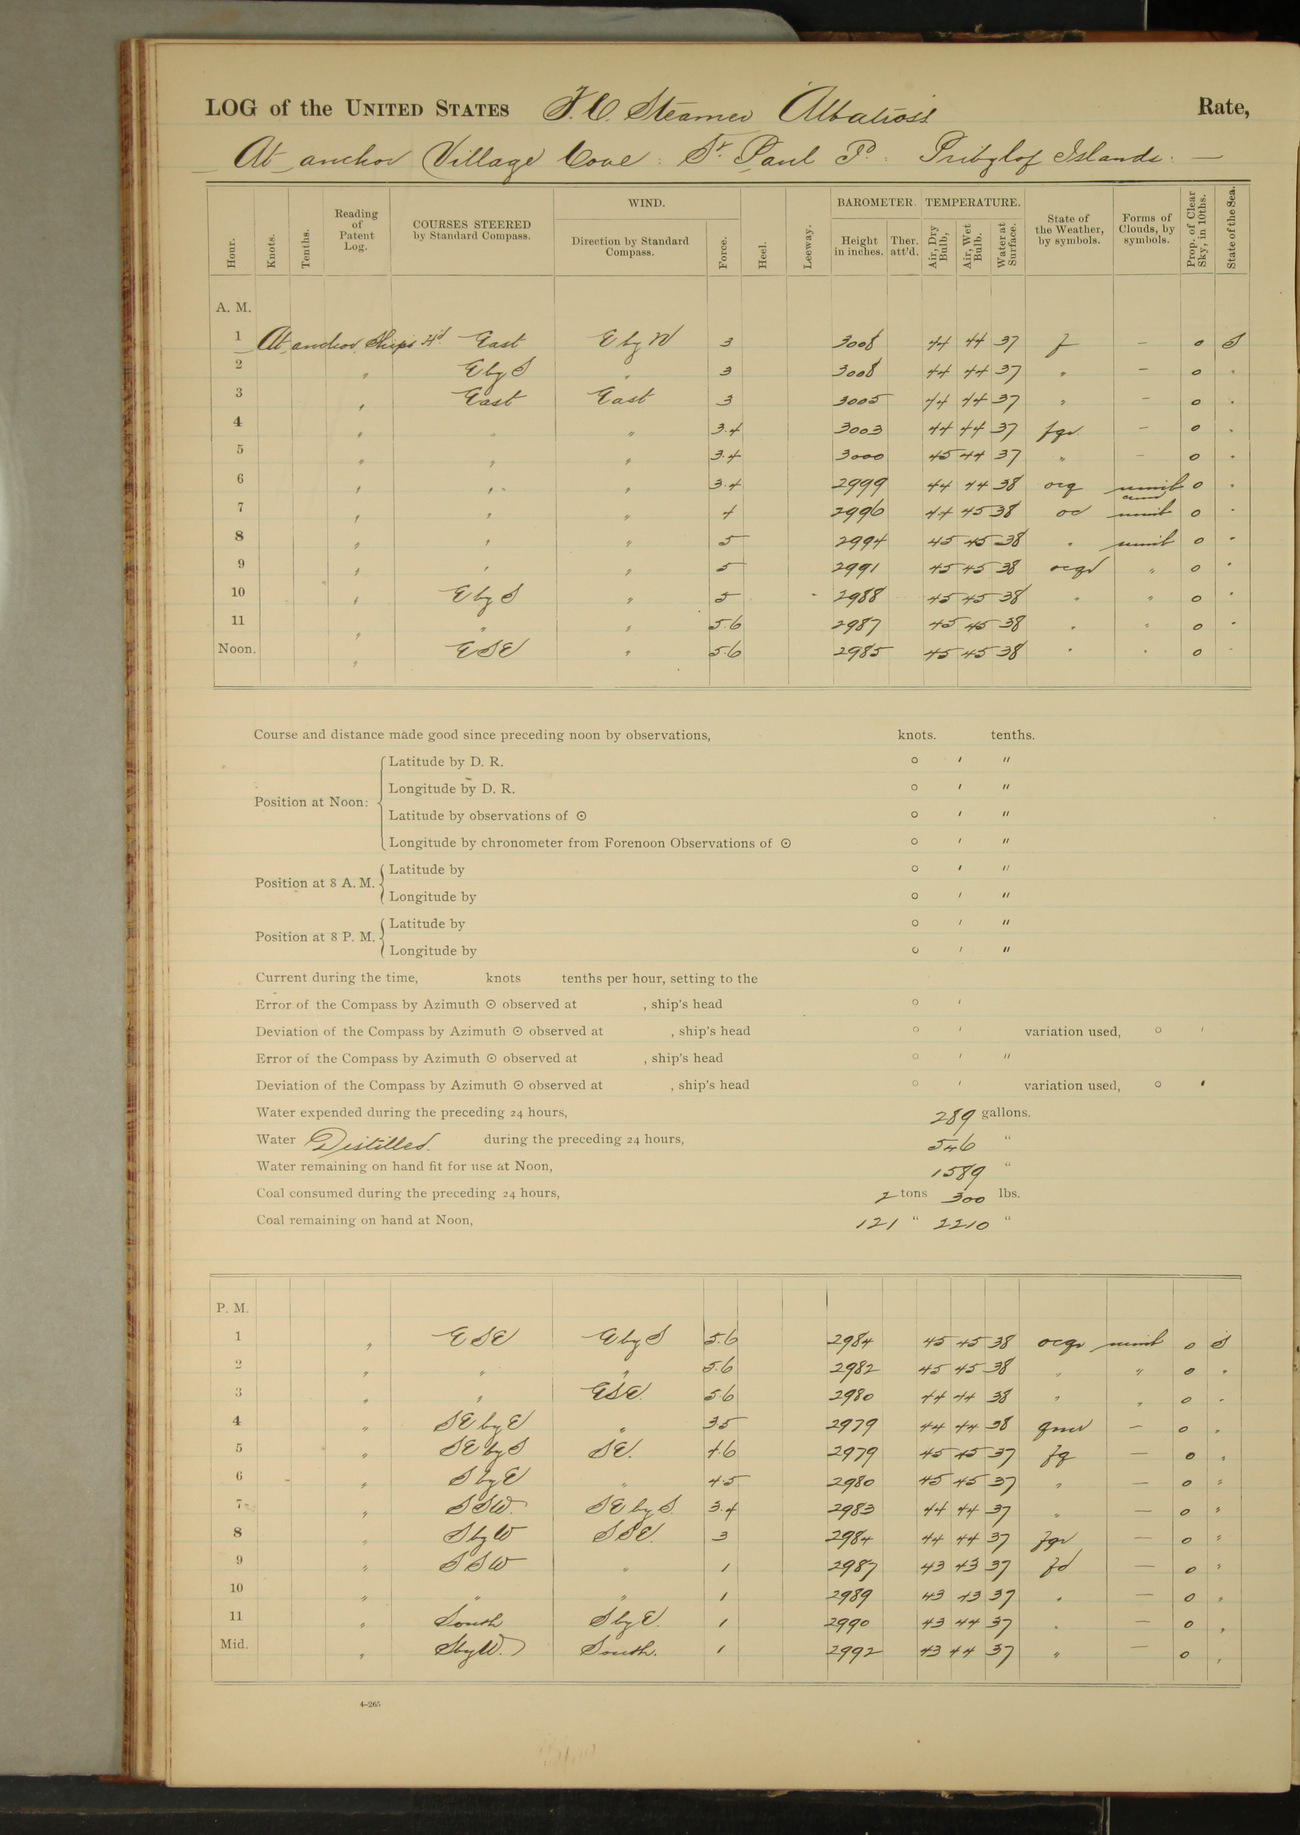 LOG of the UNITED STATES F.C. Steamer Albatross Rate,
At anchor Village Cove: St. Paul Id: Pribylof Islands.
WIND. BAROMETER. TEMPERATURE.
Hour. Knots. Tenths. Reading of Patent Log. COURSES STEERED by Standard Compass. Direction by Standard Compass. Force. Heel. Leeway. Height in inches. Ther. att'd. Air, Dry Bulb, Air, Wet Bulb. Water at Surface. State of the Weather, by symbols. Forms of Clouds, by symbols. Prop. of Clear Sky, in 10ths. State of the Sea.
A. M.
1 At anchor Ships Hd East E by N 3 3008 44 44 37 f — 0 S
2 " E by S " 3 3008 44 44 37 " — 0 "
3 " East East 3 3005 44 44 37 " — 0 "
4 " " " 3.4 3003 44 44 37 fgr — 0 "
5 " " " 3.4 3000 45 44 37 " — 0 "
6 " " " 3.4 2999 44 44 38 ocg nimb 0 "
7 " " " 4 2996 44 45 38 oc cum nimb 0 "
8 " " " 5 2994 45 45 38 " nimb 0 "
9 " " " 5 2991 45 45 38 ocqd " 0 "
10 " E by S " 5 2988 45 45 38 " " 0 "
11 " " " 5.6 2987 45 45 38 " " 0 "
Noon. " ESE " 5.6 2985 45 45 38 " " 0 "
Course and distance made good since preceding noon by observations, knots. tenths.
Position at Noon: Latitude by D. R. ° ′ ″
Longitude by D. R. ° ′ ″
Latitude by observations of ⊙ ° ′ ″
Longitude by chronometer from Forenoon Observations of ⊙ ° ′ ″
Position at 8 A. M. Latitude by ° ′ ″
Longitude by ° ′ ″
Position at 8 P. M. Latitude by ° ′ ″
Longitude by ° ′ ″
Current during the time, knots tenths per hour, setting to the
Error of the Compass by Azimuth ⊙ observed at , ship's head ° ′
Deviation of the Compass by Azimuth ⊙ observed at , ship's head ° ′ variation used, ° ′
Error of the Compass by Azimuth ⊙ observed at , ship's head ° ′ ″
Deviation of the Compass by Azimuth ⊙ observed at , ship's head ° ′ variation used, ° ′
Water expended during the preceding 24 hours, 289 gallons.
Water Distilled. during the preceding 24 hours, 546 "
Water remaining on hand fit for use at Noon, 1589 "
Coal consumed during the preceding 24 hours, 2 tons 300 lbs.
Coal remaining on hand at Noon, 121 " 2210 "
P. M.
1 " ESE E by S 5.6 2984 45 45 38 ocqr nimb 0 S
2 " " " 5.6 2982 45 45 38 " " 0 "
3 " " ESE. 5.6 2980 44 44 38 " " 0 "
4 " SE by E " 3.5 2979 44 44 38 qmr — 0 "
5 " SE by S SE. 4.6 2979 45 45 37 fq — 0 "
6 " S by E " 4.5 2980 45 45 37 " — 0 "
7 " SSW. SE by S. 3.4 2983 44 44 37 " — 0 "
8 " S by W SSE. 3 2984 44 44 37 fqr — 0 "
9 " SSW " 1 2987 43 43 37 fd — 0 "
10 " " " 1 2989 43 43 37 " — 0 "
11 South S by E. 1 2990 43 44 37 " — 0 "
Mid. " S by W. South. 1 2992 43 44 37 " — 0 "
4-265